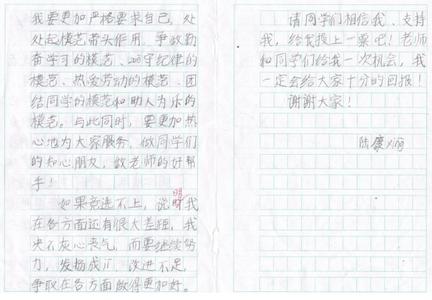 我要更加严格要求自己，处
处起模范带头作用，争做勤
奋学习的模范、遵守纪律的
模范、热爱劳动的模范、团
结同学的模范和助人为乐的
模范。与此同时，要更加热
心地为大家服务，做同学们
的知心朋友，做老师的好帮
手！
如果竞选不上，说明我
在各方面还有很大差距，我
决不灰心丧气，而要继续努
力，发扬成，改进不足，
争取在各方面做得更加好。
请同学们相信我、支持
我，给我投上一票吧！老师
和同学们给我一次机会，我
一定会给大家十分的回报！
谢谢大家！
陆康